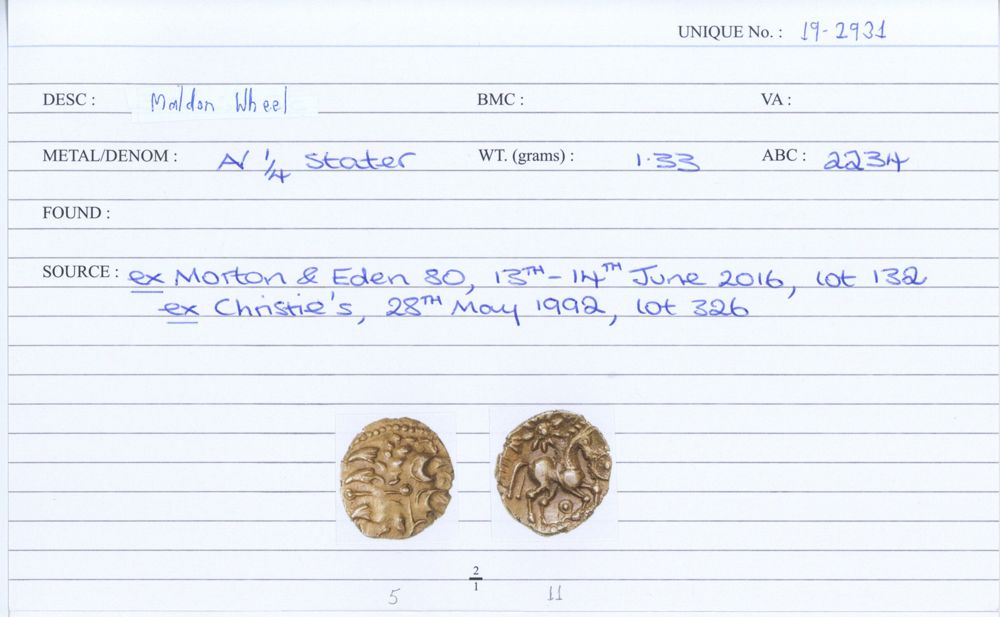 UNIQUE No. : 19-2931
DESC : Maldon Wheel BMC : VA :
METAL/DENOM : A/ 1/4 Stater WT. (grams) : 1.33 ABC : 2234
FOUND :
SOURCE : ex Morton & Eden 80, 13TH-14TH June 2016, lot 132
ex Christie's, 28TH May 1992, lot 326
2
1
5 11